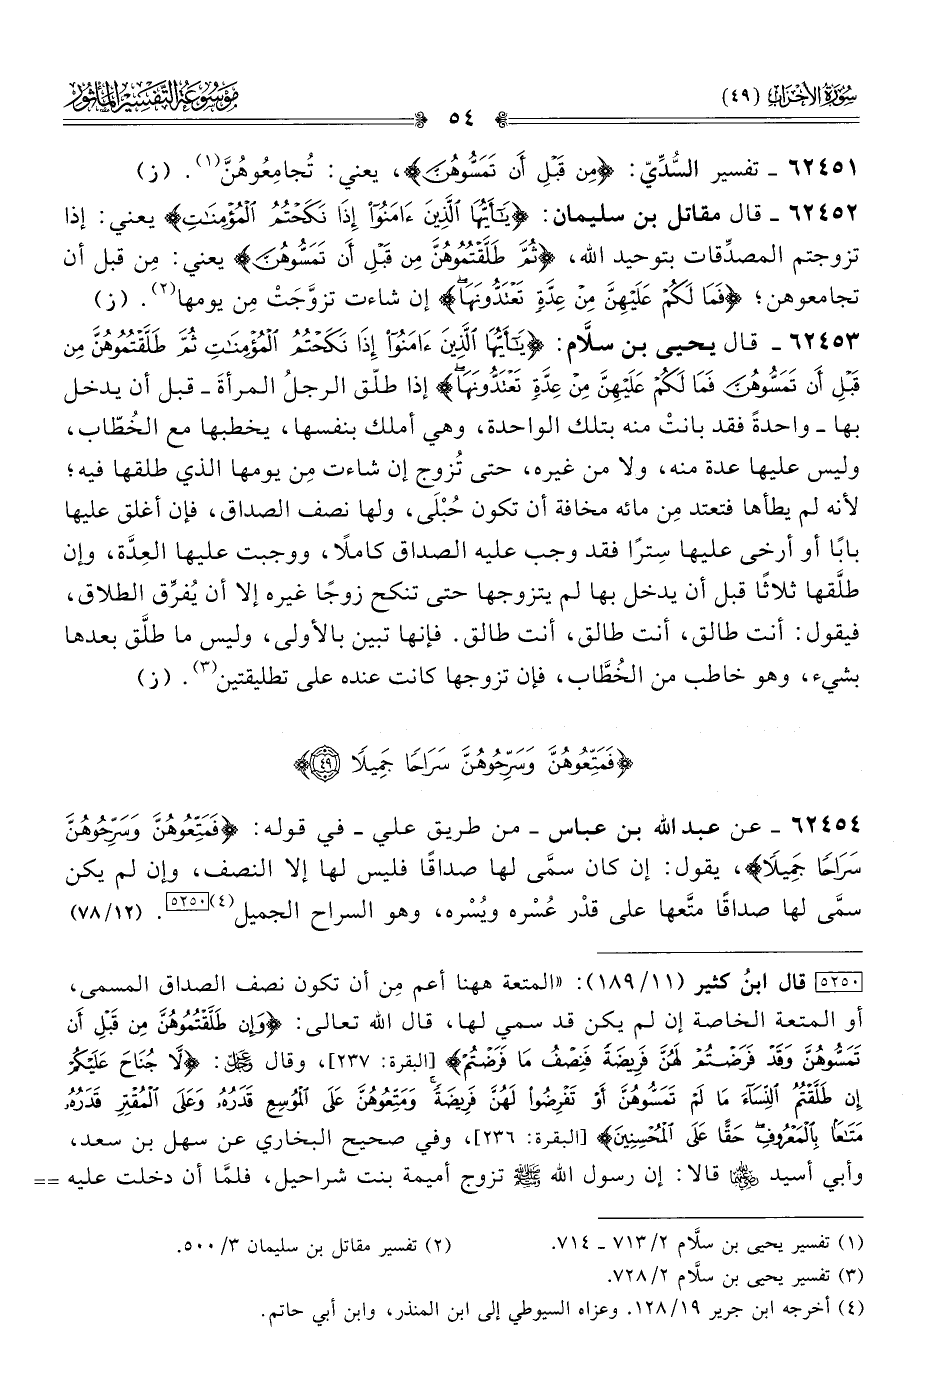 سورة الأحزاب (٤٩)
٥٤
موسوعة التفسير المأثور
٦٢٤٥١ ـ تفسير السُّدِّيّ: ﴿مِن قَبْلِ أَن تَمَسُّوهُنَّ﴾، يعني: تُجامِعُوهُنَّ(١). (ز)
٦٢٤٥٢ ـ قال مقاتل بن سليمان: ﴿يَٰٓأَيُّهَا ٱلَّذِينَ ءَامَنُوٓا۟ إِذَا نَكَحْتُمُ ٱلْمُؤْمِنَٰتِ﴾ يعني: إذا
تزوجتم المصدِّقات بتوحيد الله، ﴿ثُمَّ طَلَّقْتُمُوهُنَّ مِن قَبْلِ أَن تَمَسُّوهُنَّ﴾ يعني: مِن قبل أن
تجامعوهن؛ ﴿فَمَا لَكُمْ عَلَيْهِنَّ مِنْ عِدَّةٍ تَعْتَدُّونَهَا﴾ إن شاءت تزوَّجَتْ مِن يومها(٢). (ز)
٦٢٤٥٣ ـ قال يحيى بن سلَّام: ﴿يَٰٓأَيُّهَا ٱلَّذِينَ ءَامَنُوٓا۟ إِذَا نَكَحْتُمُ ٱلْمُؤْمِنَٰتِ ثُمَّ طَلَّقْتُمُوهُنَّ مِن
قَبْلِ أَن تَمَسُّوهُنَّ فَمَا لَكُمْ عَلَيْهِنَّ مِنْ عِدَّةٍ تَعْتَدُّونَهَا﴾ إذا طلّق الرجلُ المرأة ـ قبل أن يدخل
بها ـ واحدةً فقد بانتْ منه بتلك الواحدة، وهي أملك بنفسها، يخطبها مع الخُطّاب،
وليس عليها عدة منه، ولا من غيره، حتى تُزوج إن شاءت مِن يومها الذي طلقها فيه؛
لأنه لم يطأها فتعتد مِن مائه مخافة أن تكون حُبْلَى، ولها نصف الصداق، فإن أغلق عليها
بابًا أو أرخى عليها سِترًا فقد وجب عليه الصداق كاملًا، ووجبت عليها العِدَّة، وإن
طلَّقها ثلاثًا قبل أن يدخل بها لم يتزوجها حتى تنكح زوجًا غيره إلا أن يُفرِّق الطلاق،
فيقول: أنت طالق، أنت طالق، أنت طالق. فإنها تبين بالأولى، وليس ما طلَّق بعدها
بشيء، وهو خاطب من الخُطَّاب، فإن تزوجها كانت عنده على تطليقتين(٣). (ز)
﴿فَمَتِّعُوهُنَّ وَسَرِّحُوهُنَّ سَرَاحًا جَمِيلًا ٤٩﴾
٦٢٤٥٤ ـ عن عبد الله بن عباس ـ من طريق علي ـ في قوله: ﴿فَمَتِّعُوهُنَّ وَسَرِّحُوهُنَّ
سَرَاحًا جَمِيلًا﴾، يقول: إن كان سمَّى لها صداقًا فليس لها إلا النصف، وإن لم يكن
سمَّى لها صداقًا متَّعها على قدْر عُسْره ويُسْره، وهو السراح الجميل(٤) ٥٢٥٠. (٧٨/١٢)
٥٢٥٠ قال ابنُ كثير (١٨٩/١١): «المتعة ههنا أعم مِن أن تكون نصف الصداق المسمى،
أو المتعة الخاصة إن لم يكن قد سمي لها، قال الله تعالى: ﴿وَإِن طَلَّقْتُمُوهُنَّ مِن قَبْلِ أَن
تَمَسُّوهُنَّ وَقَدْ فَرَضْتُمْ لَهُنَّ فَرِيضَةً فَنِصْفُ مَا فَرَضْتُمْ﴾ [البقرة: ٢٣٧]، وقال ﷻ: ﴿لَّا جُنَاحَ عَلَيْكُمْ
إِن طَلَّقْتُمُ ٱلنِّسَآءَ مَا لَمْ تَمَسُّوهُنَّ أَوْ تَفْرِضُوا۟ لَهُنَّ فَرِيضَةً وَمَتِّعُوهُنَّ عَلَى ٱلْمُوسِعِ قَدَرُهُۥ وَعَلَى ٱلْمُقْتِرِ قَدَرُهُۥ
مَتَٰعًۢا بِٱلْمَعْرُوفِ حَقًّا عَلَى ٱلْمُحْسِنِينَ﴾ [البقرة: ٢٣٦]، وفي صحيح البخاري عن سهل بن سعد،
وأبي أسيد ﵄ قالا: إن رسول الله ﷺ تزوج أميمة بنت شراحيل، فلمَّا أن دخلت عليه ==
(١) تفسير يحيى بن سلَّام ٧١٣/٢ ـ ٧١٤. (٢) تفسير مقاتل بن سليمان ٥٠٠/٣.
(٣) تفسير يحيى بن سلَّام ٧٢٨/٢.
(٤) أخرجه ابن جرير ١٢٨/١٩. وعزاه السيوطي إلى ابن المنذر، وابن أبي حاتم.